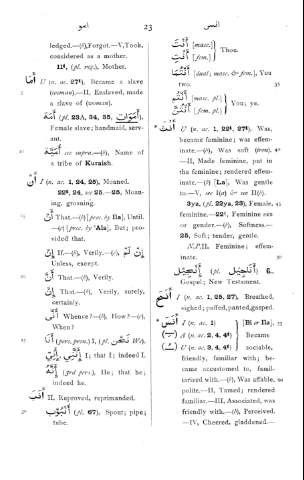 اسو
23
انسى
ledged.—(b), Forgot.—V, Took,
considered as a mother.
11⁴, (pl. reg.), Mother.
أَمَا U (n. ac. 27⁴), Became a slave
(woman).—II, Enslaved, made
a slave of (woman).
أَمَة (pl. 23A, 34, 35, أَمَوَات),
Female slave; handmaid, serv-
ant.
see supra.—(b), Name of
a tribe of Kuraish.
أَنَّ I (n. ac. 1, 24, 25), Moaned.
22⁴, 24, see 25.—25, Moan-
ing, groaning.
أَنْ That.—(b) [prec. by Ila], Until.
—(c) [prec. by 'Ala], But; pro-
vided that.
إِنْ If.—(b), Verily.—(c), إِنْ لَمْ
Unless, except.
أَنَّ That.—(b), Verily.
إِنَّ That.—(b), Verily, surely,
certainly.
أَنَّى Whence?—(b), How?—(c),
When?
أَنَا (pers. pron.) I, (pl. نَحْنُ We),
إِنِّي, إِنَّنِي I; that I; indeed I.
إِنَّهُ (3rd pers.), He; that he;
indeed he.
أَنَّبَ II, Reproved, reprimanded.
أُنْبُوب (pl. 67), Spout; pipe;
tube.
أَنْتَ [masc.]
أَنْتِ [fem.]
Thou.
أَنْتُمَا [dual; masc. & fem.], You
two.
أَنْتُمْ [masc. pl.]
أَنْتُنَّ [fem. pl.]
You; ye.
أَنُثَ U (n. ac. 1, 22⁴, 27⁴), Was,
became feminine; was effem-
inate.—(b), Was soft (iron).
—II, Made feminine, put in
the feminine; rendered effem-
inate.—(b) [La], Was gentle
to.—V, see I(a) & see II(b).
3ya, (pl. 22ya, 23), Female,
feminine.—22⁴, Feminine sex
or gender.—(b), Softness.—
25, Soft; tender, gentle.
N.P.II, Feminine; effem-
inate.
إِنْجِيل (pl. أَنَاجِيل) 6.
Gospel; New Testament.
أَنَحَ I (n. ac. 1, 25, 27), Breathed,
sighed; puffed, panted, gasped.
أَنَسَ I (n. ac. 1) [Bi or Ila],
A (n. ac. 2, 4, 4⁴) Became
U (n. ac. 3, 4, 4⁴) sociable,
friendly, familiar with; be-
came accustomed to, famil-
iarised with.—(b), Was affable,
polite.—II, Tamed; rendered
familiar.—III, Associated, was
friendly with.—(b), Perceived.
—IV, Cheered, gladdened.—